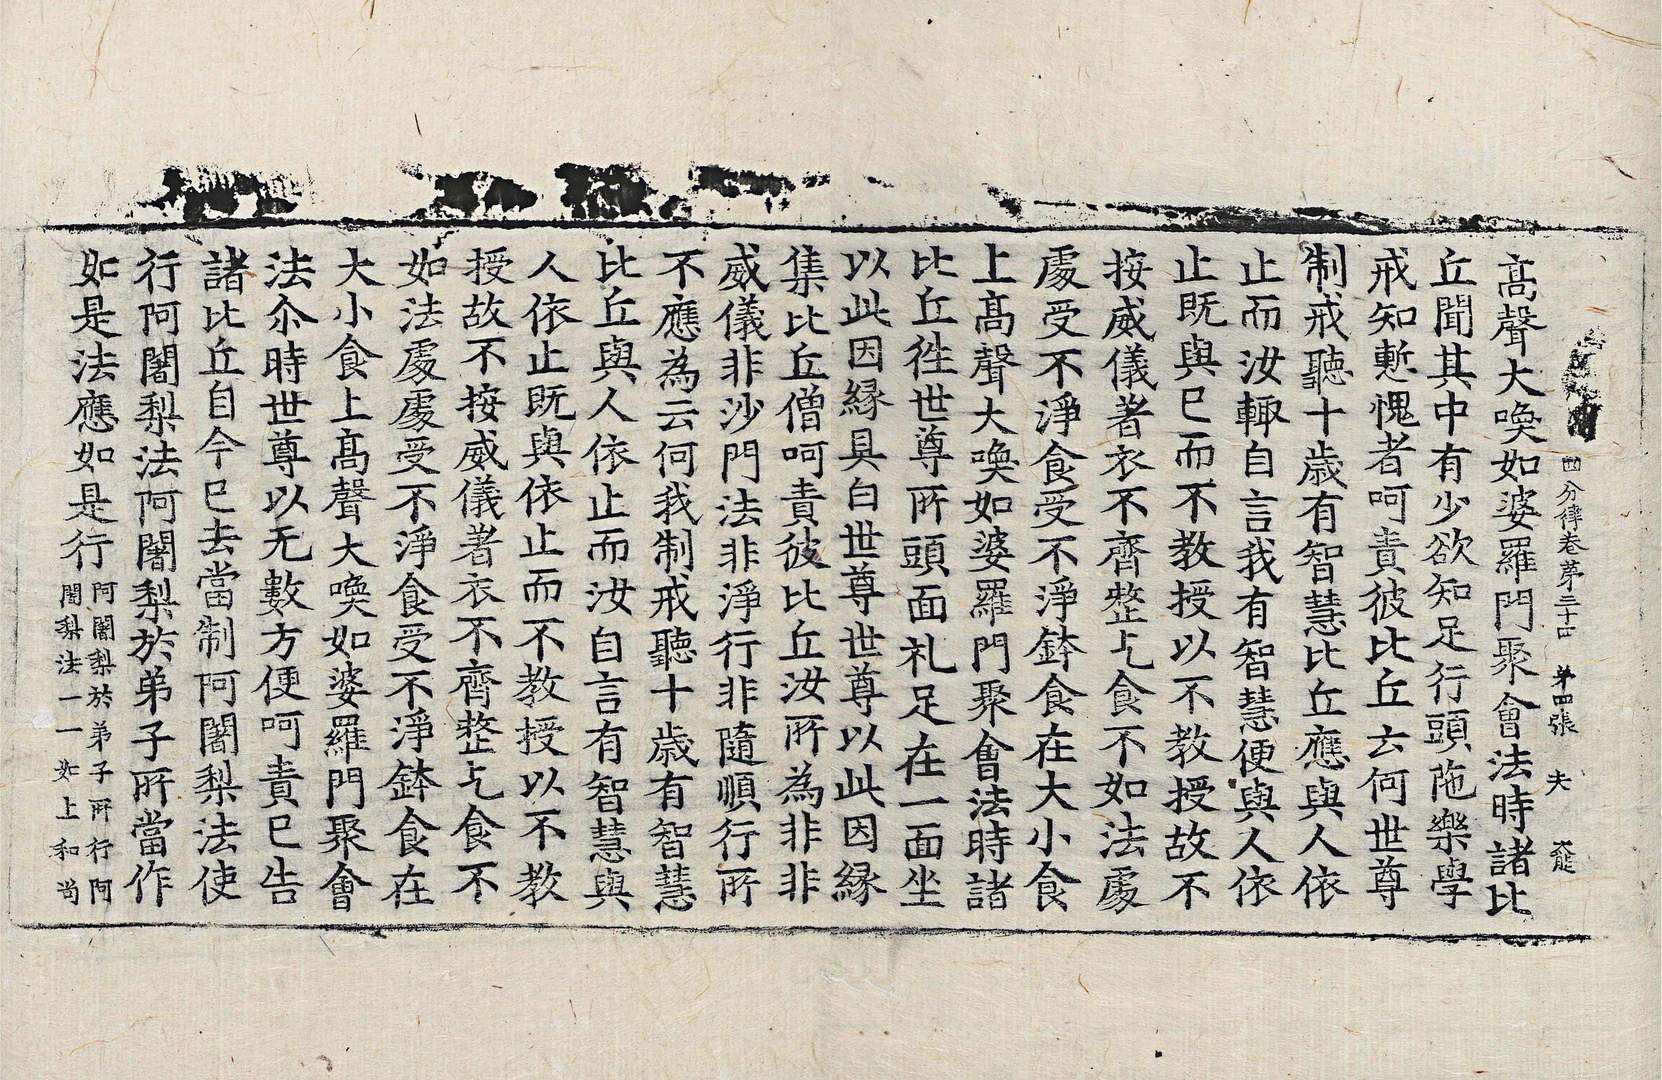 四分律卷第三十四 第四張 夫
髙聲大喚如婆羅門聚會法時諸比
丘聞其中有少欲知足行頭陁樂學
戒知慙愧者呵責彼比丘云何世尊
制戒聽十歳有智慧比丘應與人依
止而汝輙自言我有智慧便與人依
止既與已而不教授以不教授故不
按威儀著衣不齊整乞食不如法處
處受不淨食受不淨鉢食在大小食
上髙聲大喚如婆羅門聚會法時諸
比丘徃世尊所頭面礼足在一面坐
以此因縁具白世尊世尊以此因縁
集比丘僧呵責彼比丘汝所為非非
威儀非沙門法非淨行非隨順行所
不應為云何我制戒聽十歳有智慧
比丘與人依止而汝自言有智慧與
人依止既與依止而不教授以不教
授故不按威儀著衣不齊整乞食不
如法處處受不淨食受不淨鉢食在
大小食上髙聲大喚如婆羅門聚會
法尒時世尊以无數方便呵責已告
諸比丘自今已去當制阿闍梨法使
行阿闍梨法阿闍梨於弟子所當作
如是法應如是行
阿闍梨於弟子所行阿
闍梨法一一如上和尚